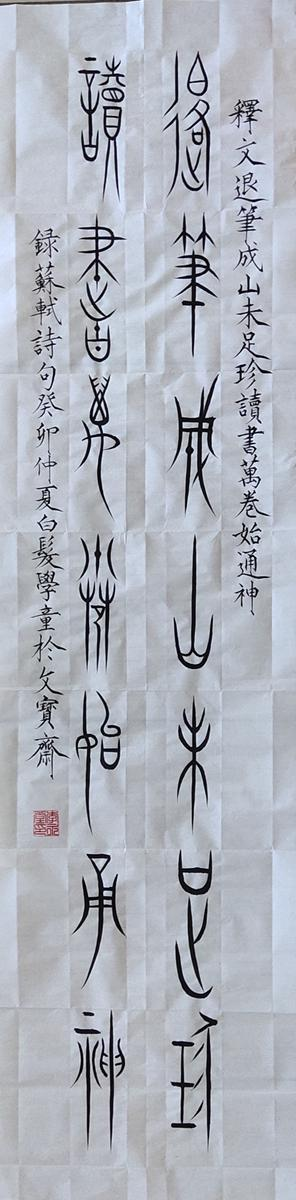 釋文退筆成山未足珍讀書萬卷始通神
退筆成山未足珍
讀書萬卷始通神
録蘇軾詩句癸卯仲夏白髮學童於文寶齋